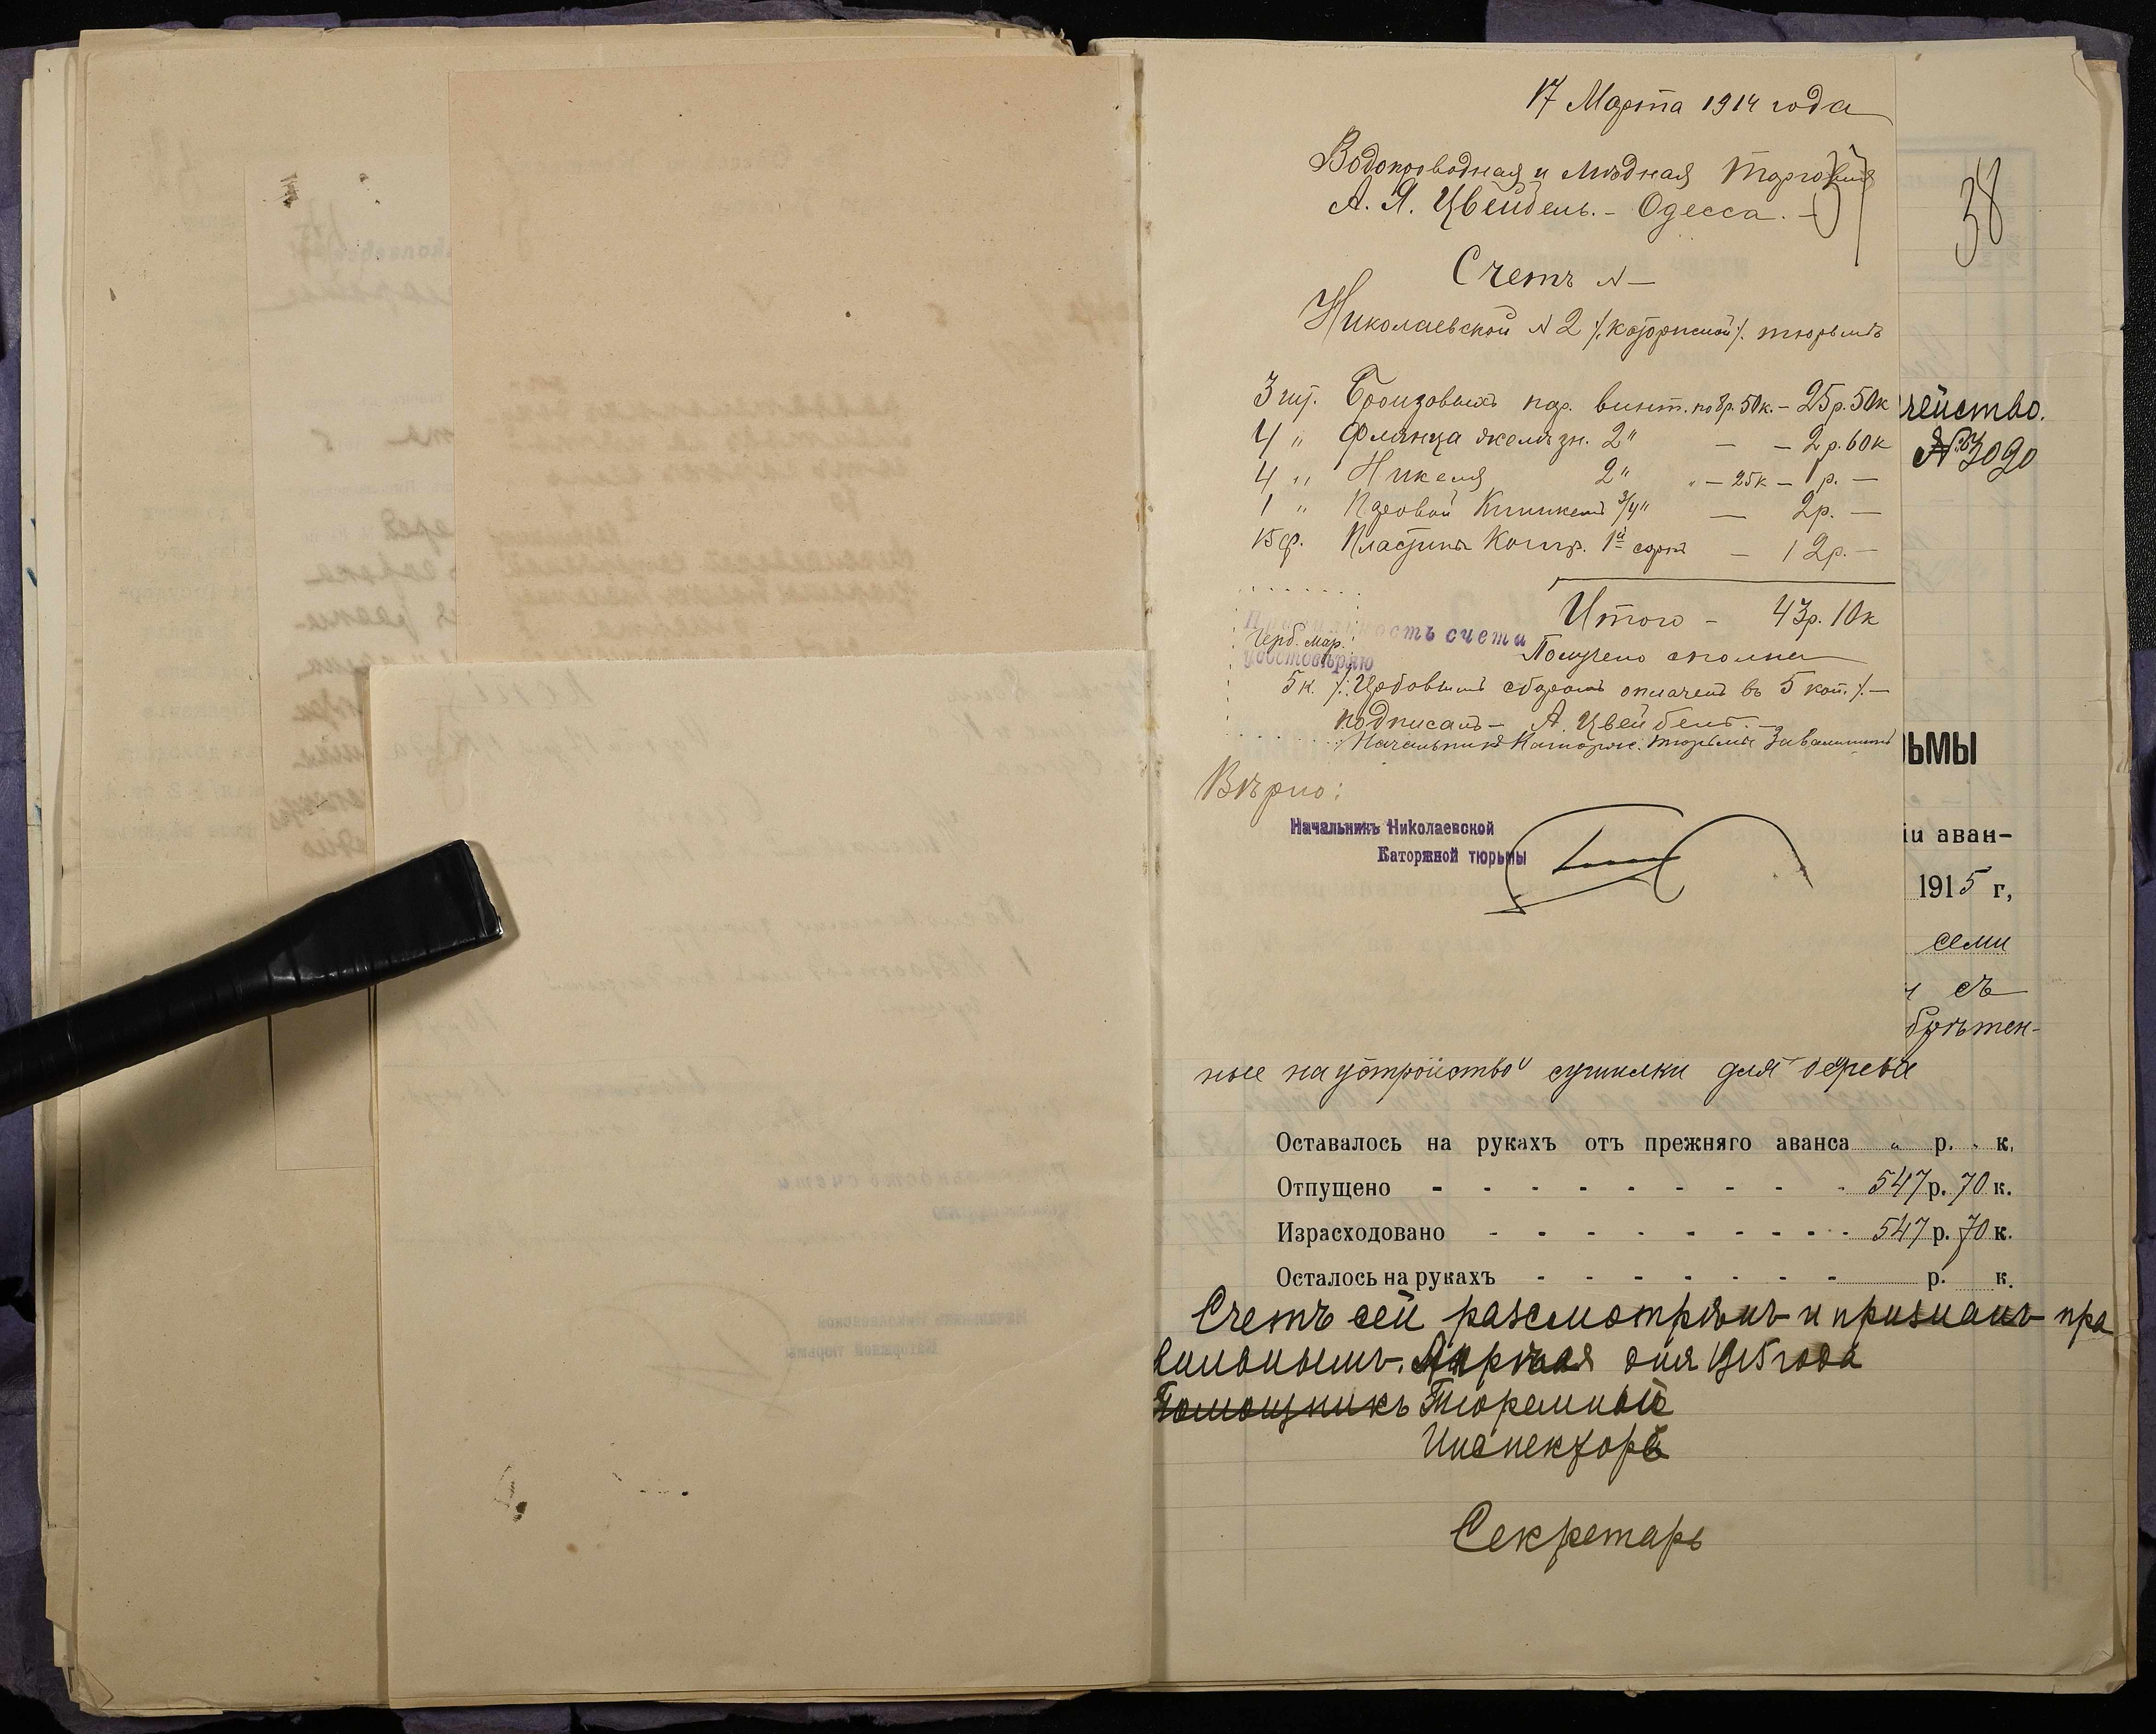 17 Марта 1914 года
Водопроводная и Мѣдная Торговля
А. Я. Цвейбель. - Одесса. -
38
Счетъ N —
Николаевской N 2 /. каторжной /. тюрьмѣ
3 шт. Бронзовыхъ пар. вент. по 8р. 50к. - 25р. 50к
4 " Флянца желѣзн. 2" — - 2р. 60к
4 " Нипеля 2" " - 25к - 1р. —
1 " Паровой 3/4" — 2р. —
15 ф. Пластины 1й сорт — 12р. —
Итого - 43р. 10к
Правильность счета
удостовѣряю
Герб. мар.
5к.
Получено сполна
/. Гербовымъ сборомъ оплаченъ въ 5 коп. /. —
подписалъ - А. Цвейбель. -
Начальникъ Каторжн. тюрьмы
Вѣрно:
Начальникъ Николаевской
Каторжной тюрьмы
чейство.
№ 3090
ЬМЫ
іи аван-
1915 г,
семи
съ
брѣтен-
ные на устройство сушилки для дерева
Оставалось на рукахъ отъ прежняго аванса " р. " к.
Отпущено - - - - - - - - - 547 р. 70 к.
Израсходовано - - - - - - - - 547 р. 70 к.
Осталось на рукахъ - - - - - - - р. к.
Счетъ сей разсмотрѣнъ и признанъ пра
вильнымъ. Апрѣля дня 1915 года
Помощникъ Тюремный
Инспекторъ
Секретарь